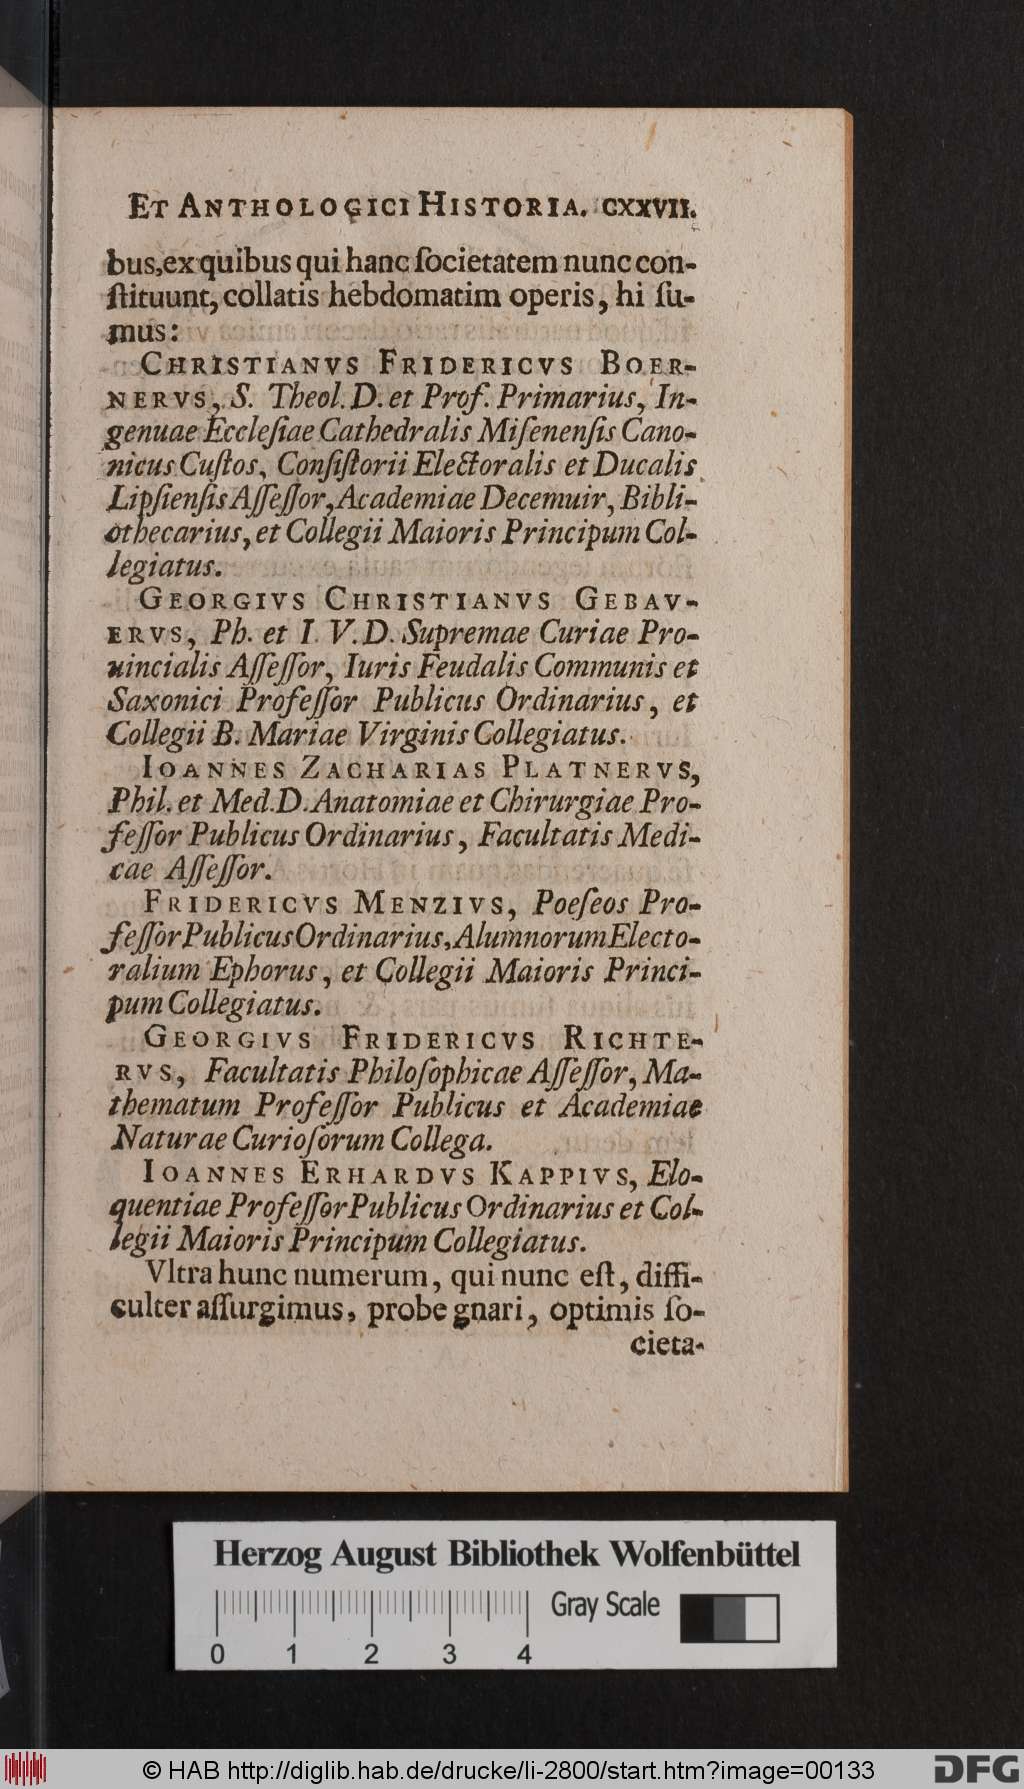 ET ANTHOLOGICI HISTORIA. CXXVII.
bus, ex quibus qui hanc ſocietatem nunc con-
ſtituunt, collatis hebdomatim operis, hi ſu-
mus:
CHRISTIANVS FRIDERICVS BOER-
NERVS, S. Theol. D. et Prof. Primarius, In-
genuae Eccleſiae Cathedralis Miſenenſis Cano-
nicus Cuſtos, Conſiſtorii Electoralis et Ducalis
Lipſienſis Aſſeſſor, Academiae Decemuir, Bibli-
othecarius, et Collegii Maioris Principum Col-
legiatus.
GEORGIVS CHRISTIANVS GEBAV-
ERVS, Ph. et I. V. D. Supremae Curiae Pro-
uincialis Aſſeſſor, Iuris Feudalis Communis et
Saxonici Profeſſor Publicus Ordinarius, et
Collegii B. Mariae Virginis Collegiatus.
IOANNES ZACHARIAS PLATNERVS,
Phil. et Med. D. Anatomiae et Chirurgiae Pro-
feſſor Publicus Ordinarius, Facultatis Medi-
cae Aſſeſſor.
FRIDERICVS MENZIVS, Poeſeos Pro-
feſſor Publicus Ordinarius, Alumnorum Electo-
ralium Ephorus, et Collegii Maioris Princi-
pum Collegiatus.
GEORGIVS FRIDERICVS RICHTE-
RVS, Facultatis Philoſophicae Aſſeſſor, Ma-
thematum Profeſſor Publicus et Academiae
Naturae Curioſorum Collega.
IOANNES ERHARDVS KAPPIVS, Elo-
quentiae Profeſſor Publicus Ordinarius et Col-
legii Maioris Principum Collegiatus.
Vltra hunc numerum, qui nunc eſt, diffi-
culter aſſurgimus, probe gnari, optimis ſo-
cieta-
Herzog August Bibliothek Wolfenbüttel
Gray Scale
0 1 2 3 4
© HAB http://diglib.hab.de/drucke/li-2800/start.htm?image=00133
DFG